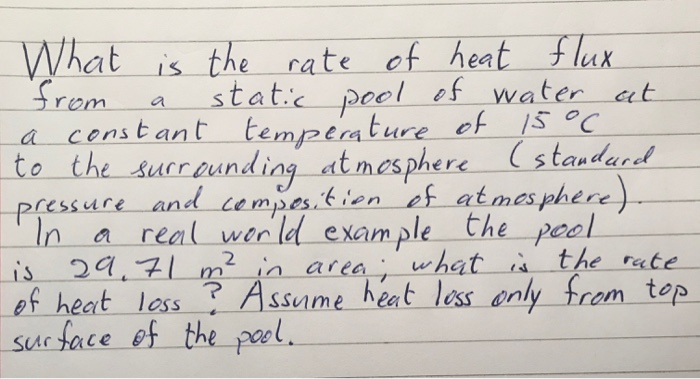 What is the rate of heat flux
from a static pool of water at
a constant temperature of 15 °C
to the surrounding atmosphere (standard
pressure and composition of atmosphere).
In a real world example the pool
is 29.71 m² in area; what is the rate
of heat loss? Assume heat loss only from top
surface of the pool.